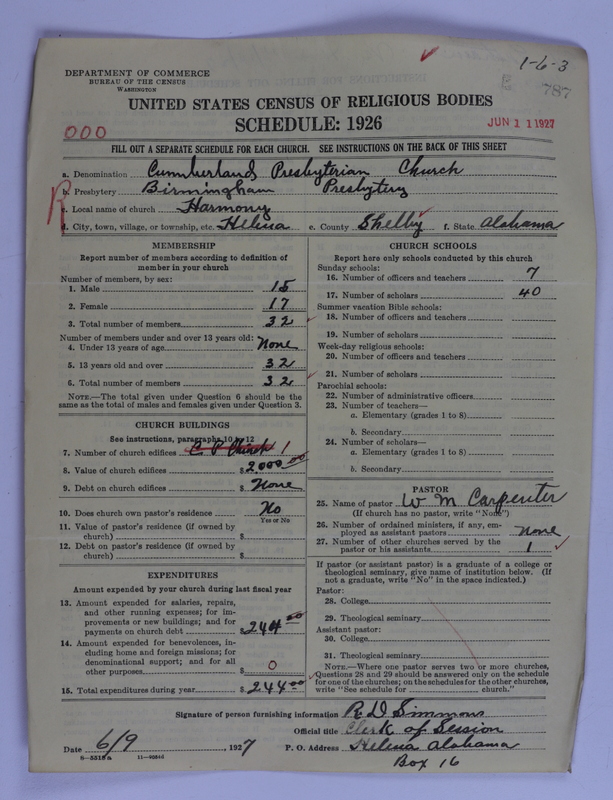 1-6-3
787
DEPARTMENT OF COMMERCE
BUREAU OF THE CENSUS
WASHINGTON
UNITED STATES CENSUS OF RELIGIOUS BODIES
SCHEDULE: 1926
JUN 11 1927
000
FILL OUT A SEPARATE SCHEDULE FOR EACH CHURCH. SEE INSTRUCTIONS ON THE BACK OF THIS SHEET
R
a. Denomination Cumberland Presbyterian Church
b. Presbytery Birmingham Presbytery
c. Local name of church Harmony
d. City, town, village, or township, etc. Helena e. County Shelby f. State Alabama
MEMBERSHIP
Report number of members according to definition of
member in your church
Number of members, by sex:
1. Male 15
2. Female 17
3. Total number of members 32
Number of members under and over 13 years old:
4. Under 13 years of age None
5. 13 years old and over 32
6. Total number of members 32
NOTE.—The total given under Question 6 should be
the same as the total of males and females given under Question 3.
CHURCH BUILDINGS
See instructions, paragraphs 10 to 12
7. Number of church edifices C P Church 1
8. Value of church edifices $2000.00
9. Debt on church edifices $ None
10. Does church own pastor's residence No
Yes or No
11. Value of pastor's residence (if owned by
church) $
12. Debt on pastor's residence (if owned by
church) $
EXPENDITURES
Amount expended by your church during last fiscal year
13. Amount expended for salaries, repairs,
and other running expenses; for im-
provements or new buildings; and for
payments on church debt $244.00
14. Amount expended for benevolences, in-
cluding home and foreign missions; for
denominational support; and for all
other purposes $ 0
15. Total expenditures during year $244.00
CHURCH SCHOOLS
Report here only schools conducted by this church
Sunday schools:
16. Number of officers and teachers 7
17. Number of scholars 40
Summer vacation Bible schools:
18. Number of officers and teachers
19. Number of scholars
Week-day religious schools:
20. Number of officers and teachers
21. Number of scholars
Parochial schools:
22. Number of administrative officers
23. Number of teachers—
a. Elementary (grades 1 to 8)
b. Secondary
24. Number of scholars—
a. Elementary (grades 1 to 8)
b. Secondary
PASTOR
25. Name of pastor W M Carpenter
(If church has no pastor, write "None")
26. Number of ordained ministers, if any, em-
ployed as assistant pastors None
27. Number of other churches served by the
pastor or his assistants 1
If pastor (or assistant pastor) is a graduate of a college or
theological seminary, give name of institution below. (If
not a graduate, write "No" in the space indicated.)
Pastor:
28. College
29. Theological seminary
Assistant pastor:
30. College
31. Theological seminary
NOTE.—Where one pastor serves two or more churches,
Questions 28 and 29 should be answered only on the schedule
for one of the churches; on the schedules for the other churches,
write "See schedule for church."
Signature of person furnishing information R D Simmons
Official title Clerk of Session
Date 6/9, 1927 P. O. Address Helena Alabama
Box 16